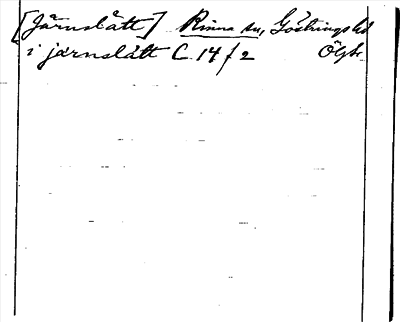 [Järnslätt] Rinna sn, Göstrings hd
i järnslätt C 14/2 Ögtl.